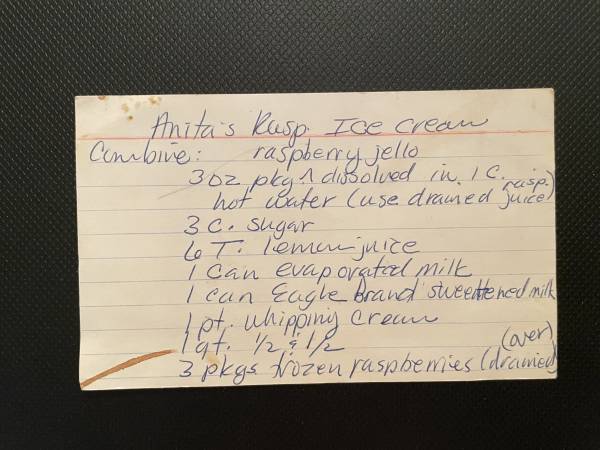 Anita's Rasp. Ice Cream
Combine: raspberry jello
3 oz pkg ^ dissolved in 1 C. rasp.
hot water (use drained juice)
3 C. sugar
6 T. lemon juice
1 can evaporated milk
1 can Eagle Brand sweetened milk
1 pt. whipping cream
1 qt. 1/2 & 1/2 (over)
3 pkgs frozen raspberries (drained)